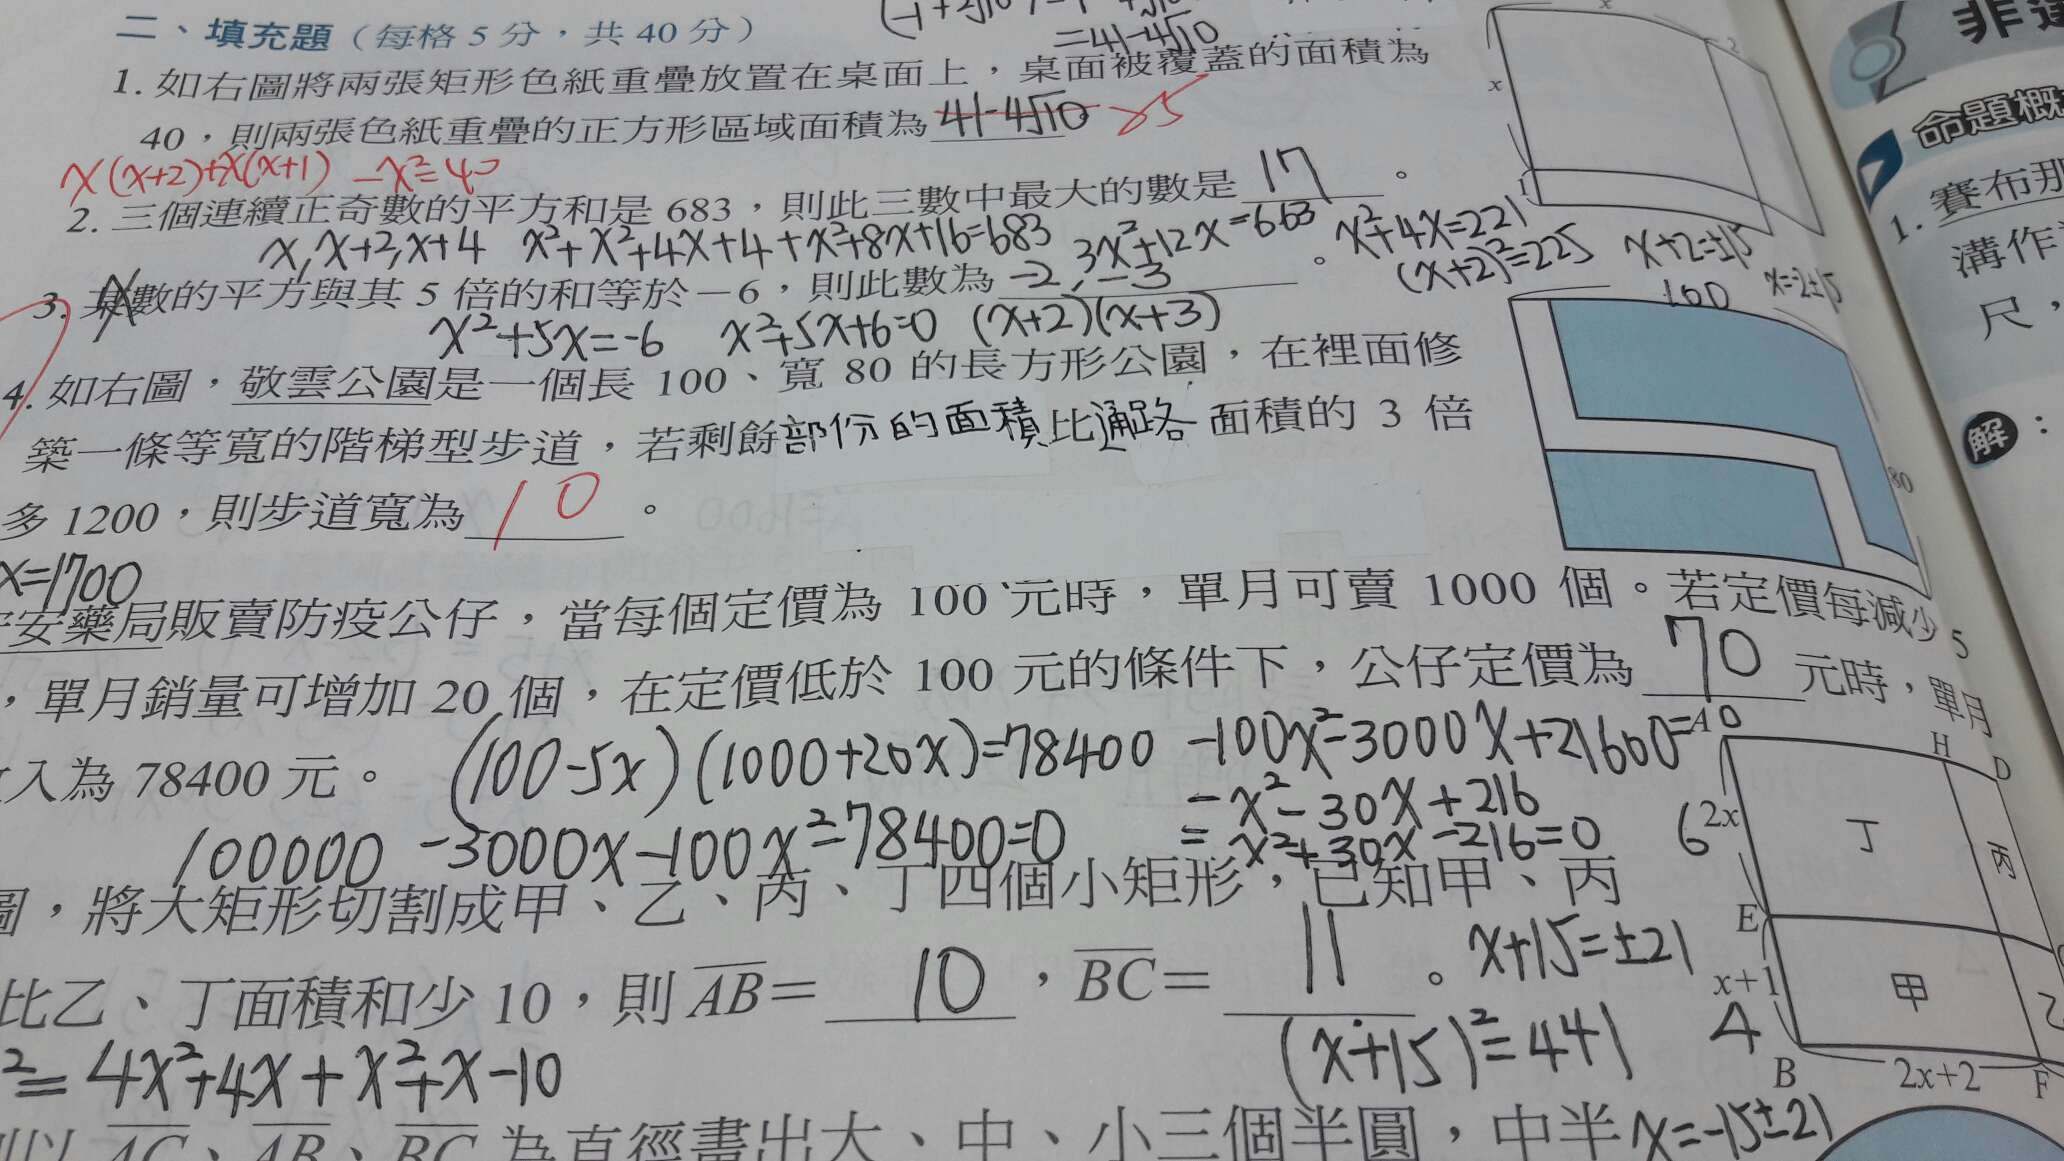 (-1+2√10)
=41-4√10
二、填充題（每格 5 分，共 40 分）
1. 如右圖將兩張矩形色紙重疊放置在桌面上，桌面被覆蓋的面積為
40，則兩張色紙重疊的正方形區域面積為 41-4√10 25
x(x+2)+x(x+1) -x²=40
x
2
x
1
2. 三個連續正奇數的平方和是 683，則此三數中最大的數是 17 。
x, x+2, x+4 x²+x²+4x+4+x²+8x+16=683 3x²+12x=663 x²+4x=221
(x+2)²=225 x+2=±15 x=-2±15
3. 某數的平方與其 5 倍的和等於－6，則此數為 -2, -3 。
x²+5x=-6 x²+5x+6=0 (x+2)(x+3)
4. 如右圖，敬雲公園是一個長 100、寬 80 的長方形公園，在裡面修
築一條等寬的階梯型步道，若剩餘部份的面積比通路面積的 3 倍
多 1200，則步道寬為 10 。
100
80
x=1700
安藥局販賣防疫公仔，當每個定價為 100 元時，單月可賣 1000 個。若定價每減少 5
，單月銷量可增加 20 個，在定價低於 100 元的條件下，公仔定價為 70 元時，單月
入為 78400 元。 (100-5x)(1000+20x)=78400 -100x²-3000x+21600=0
-x²-30x+216
100000 -3000x-100x²-78400=0 = x²+30x-216=0
圖，將大矩形切割成甲、乙、丙、丁四個小矩形，已知甲、丙
比乙、丁面積和少 10，則 AB= 10 ，BC= 11 。 x+15=±21
²=4x²+4x+x²+x-10 (x+15)²=441
x=-15±21
A
H
D
6 2x
丁
丙
E
x+1
4
甲
乙
B
2x+2
F
以 AC、AB、BC 為直徑畫出大、中、小三個半圓，中半
非
命題概
1. 賽布那
溝作
尺，
解：